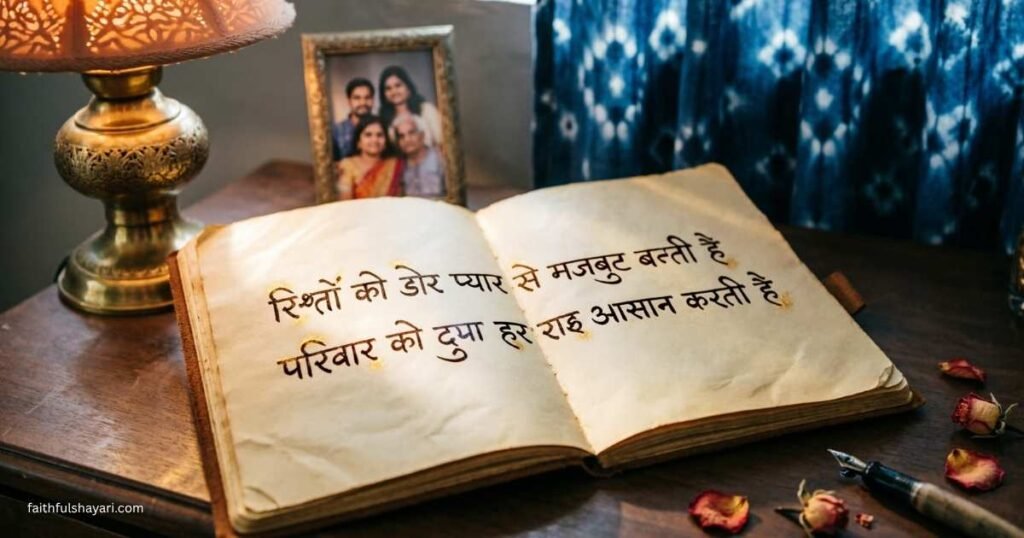 रिश्तों को डोर प्यार से मजबुट बनती हैं
परिवार को दुपा हर राइ आसान करती है
faithfulshayari.com